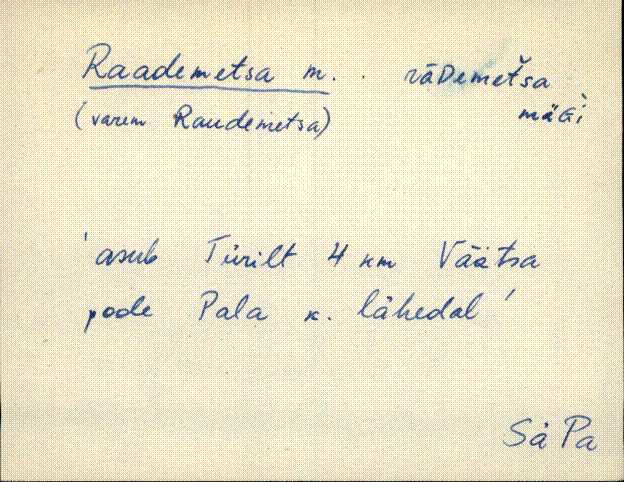 Raademetsa m. rāDemeťsa
(varem Raudemetsa) mäGi
'asub Türilt 4 km Väätsa
poole Pala k. lähedal'
Sä Pa